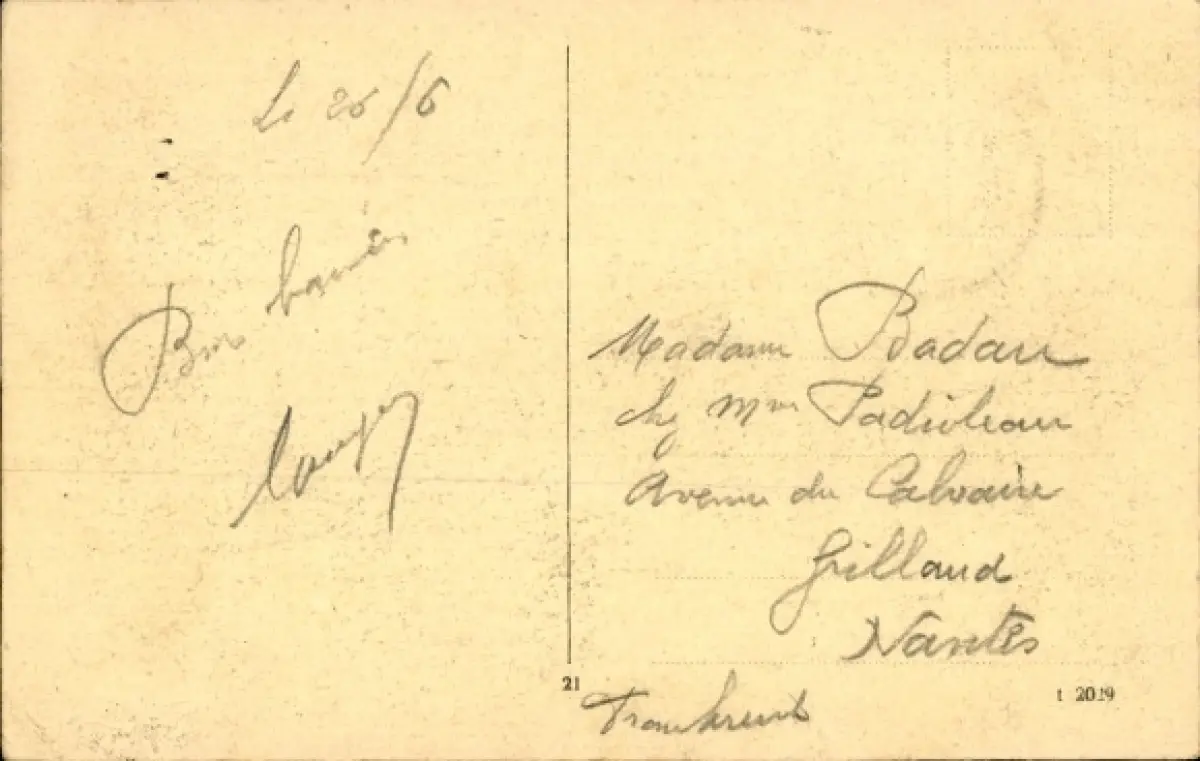 Le 26/6
Bons baisers
Madame Badau
chez Mme Padioleau
Avenue du Calvaire
Grillaud
Nantes
Frankreich
21
t 2019